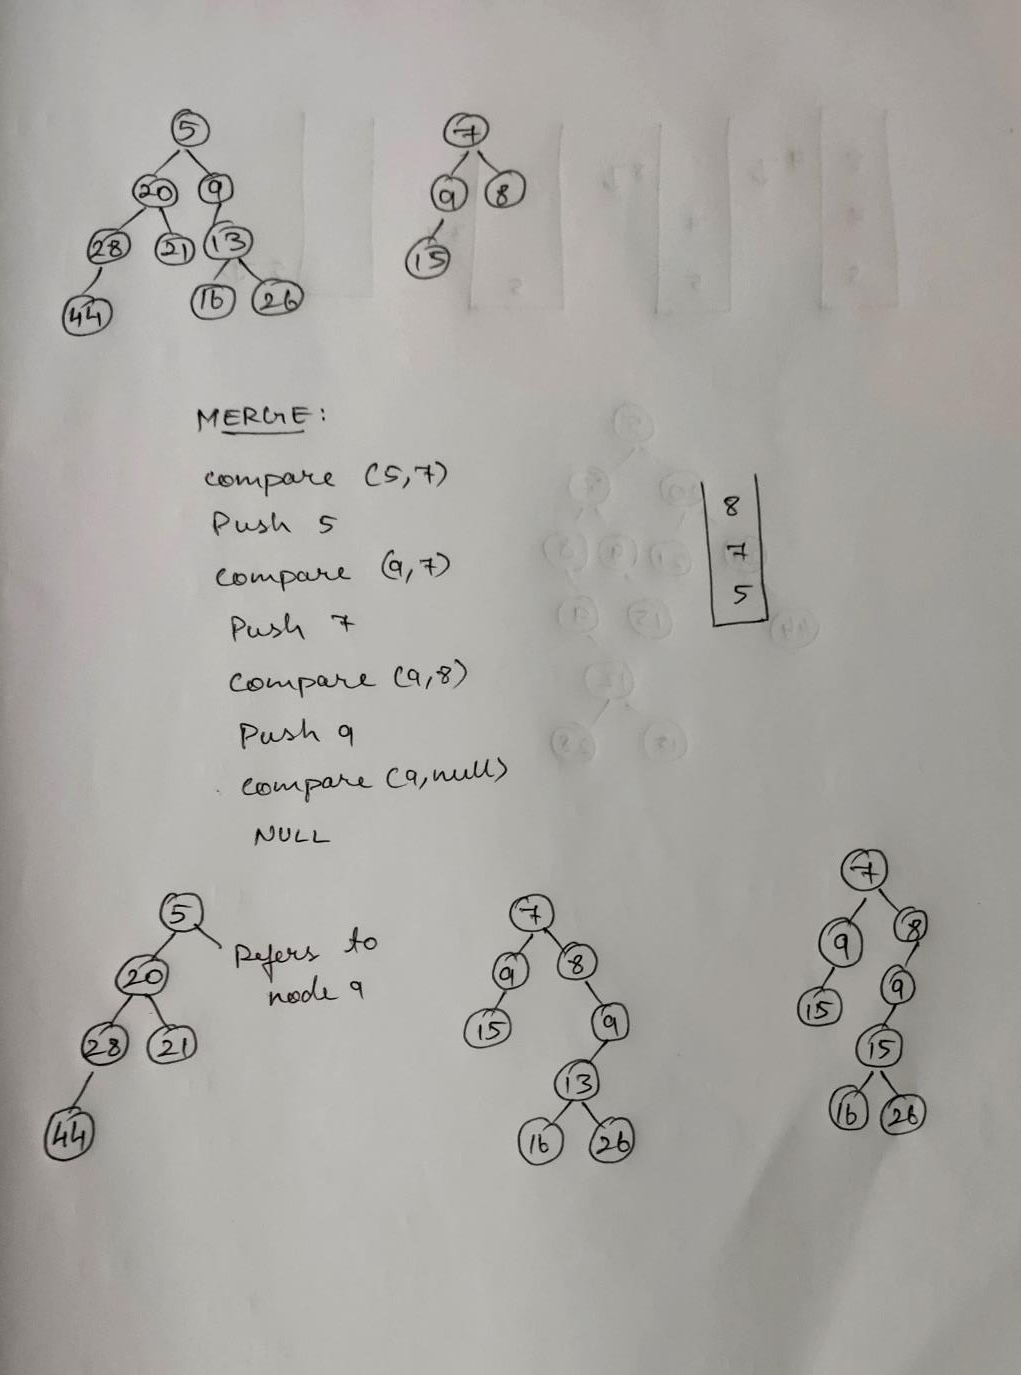 5 7
20 9 9 8
28 21 13 15
44 16 26
MERGE:
compare (5,7)
Push 5
compare (9,7)
Push 7
compare (9,8)
Push 9
compare (9,null)
NULL
8
7
5
5
20
28 21
44
Refers to
node 9
7
9 8
15 9
13
16 26
7
9 8
15 9
15
16 26